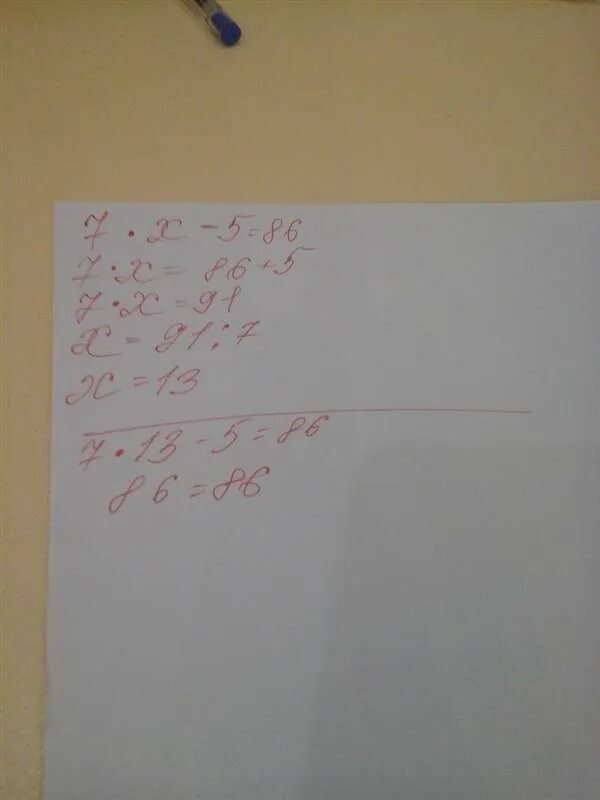 7 · x - 5 = 86
7 · x = 86 + 5
7 · x = 91
x = 91 : 7
x = 13
7 · 13 - 5 = 86
86 = 86